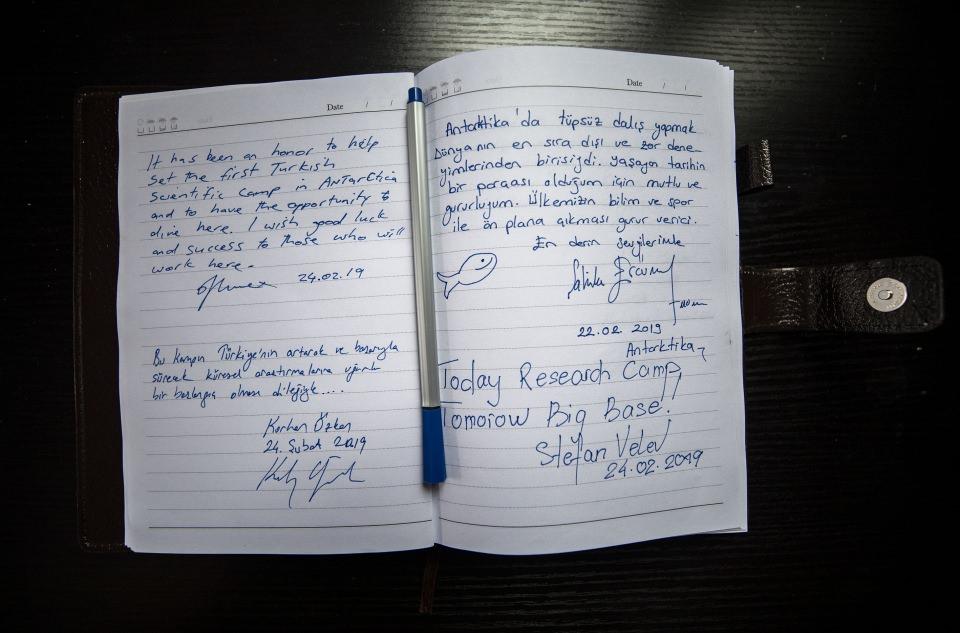 Date / /
It has been an honor to help
set the first Turkish
Scientific Camp in Antarctica
and to have the opportunity to
dive here. I wish good luck
and success to those who will
work here.
24.02.19
Bu kampın Türkiye'nin artarak ve başarıyla
sürecek küresel araştırmalarına uğurlu
bir başlangıç olması dileğiyle....
Korhan Özkan
24. Şubat 2019
Date / /
Antarktika'da tüpsüz dalış yapmak
Dünyanın en sıra dışı ve zor dene-
yimlerinden birisiydi. Yaşayan tarihin
bir parçası olduğum için mutlu ve
gururluyum. Ülkemizin bilim ve spor
ile ön plana çıkması gurur verici.
En derin sevgilerimle
Şahika Ercümen
22.02.2019
Antarktika
Today Research Camp,
Tomorow Big Base!
Stefan Velev
24.02.2019